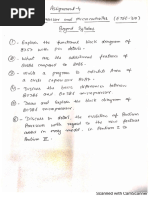 Assignment-4
Microprocessor and Microcontroller (
Beyond Syllabus
①. Explain the functional block diagram of
80386 with pin details.
②. What are the additional features of
80386 compared to 8086.
③. Write a program to calculate Area of
④. Discuss the basic difference between
80386 and 80286 microprocessor.
⑤. Draw and Explain the block diagram of
80486 microprocessor.
⑥. Discuss in detail the evolution of Pentium
Processors with regard to the new feature
Pentium
Scanned with CamScanner